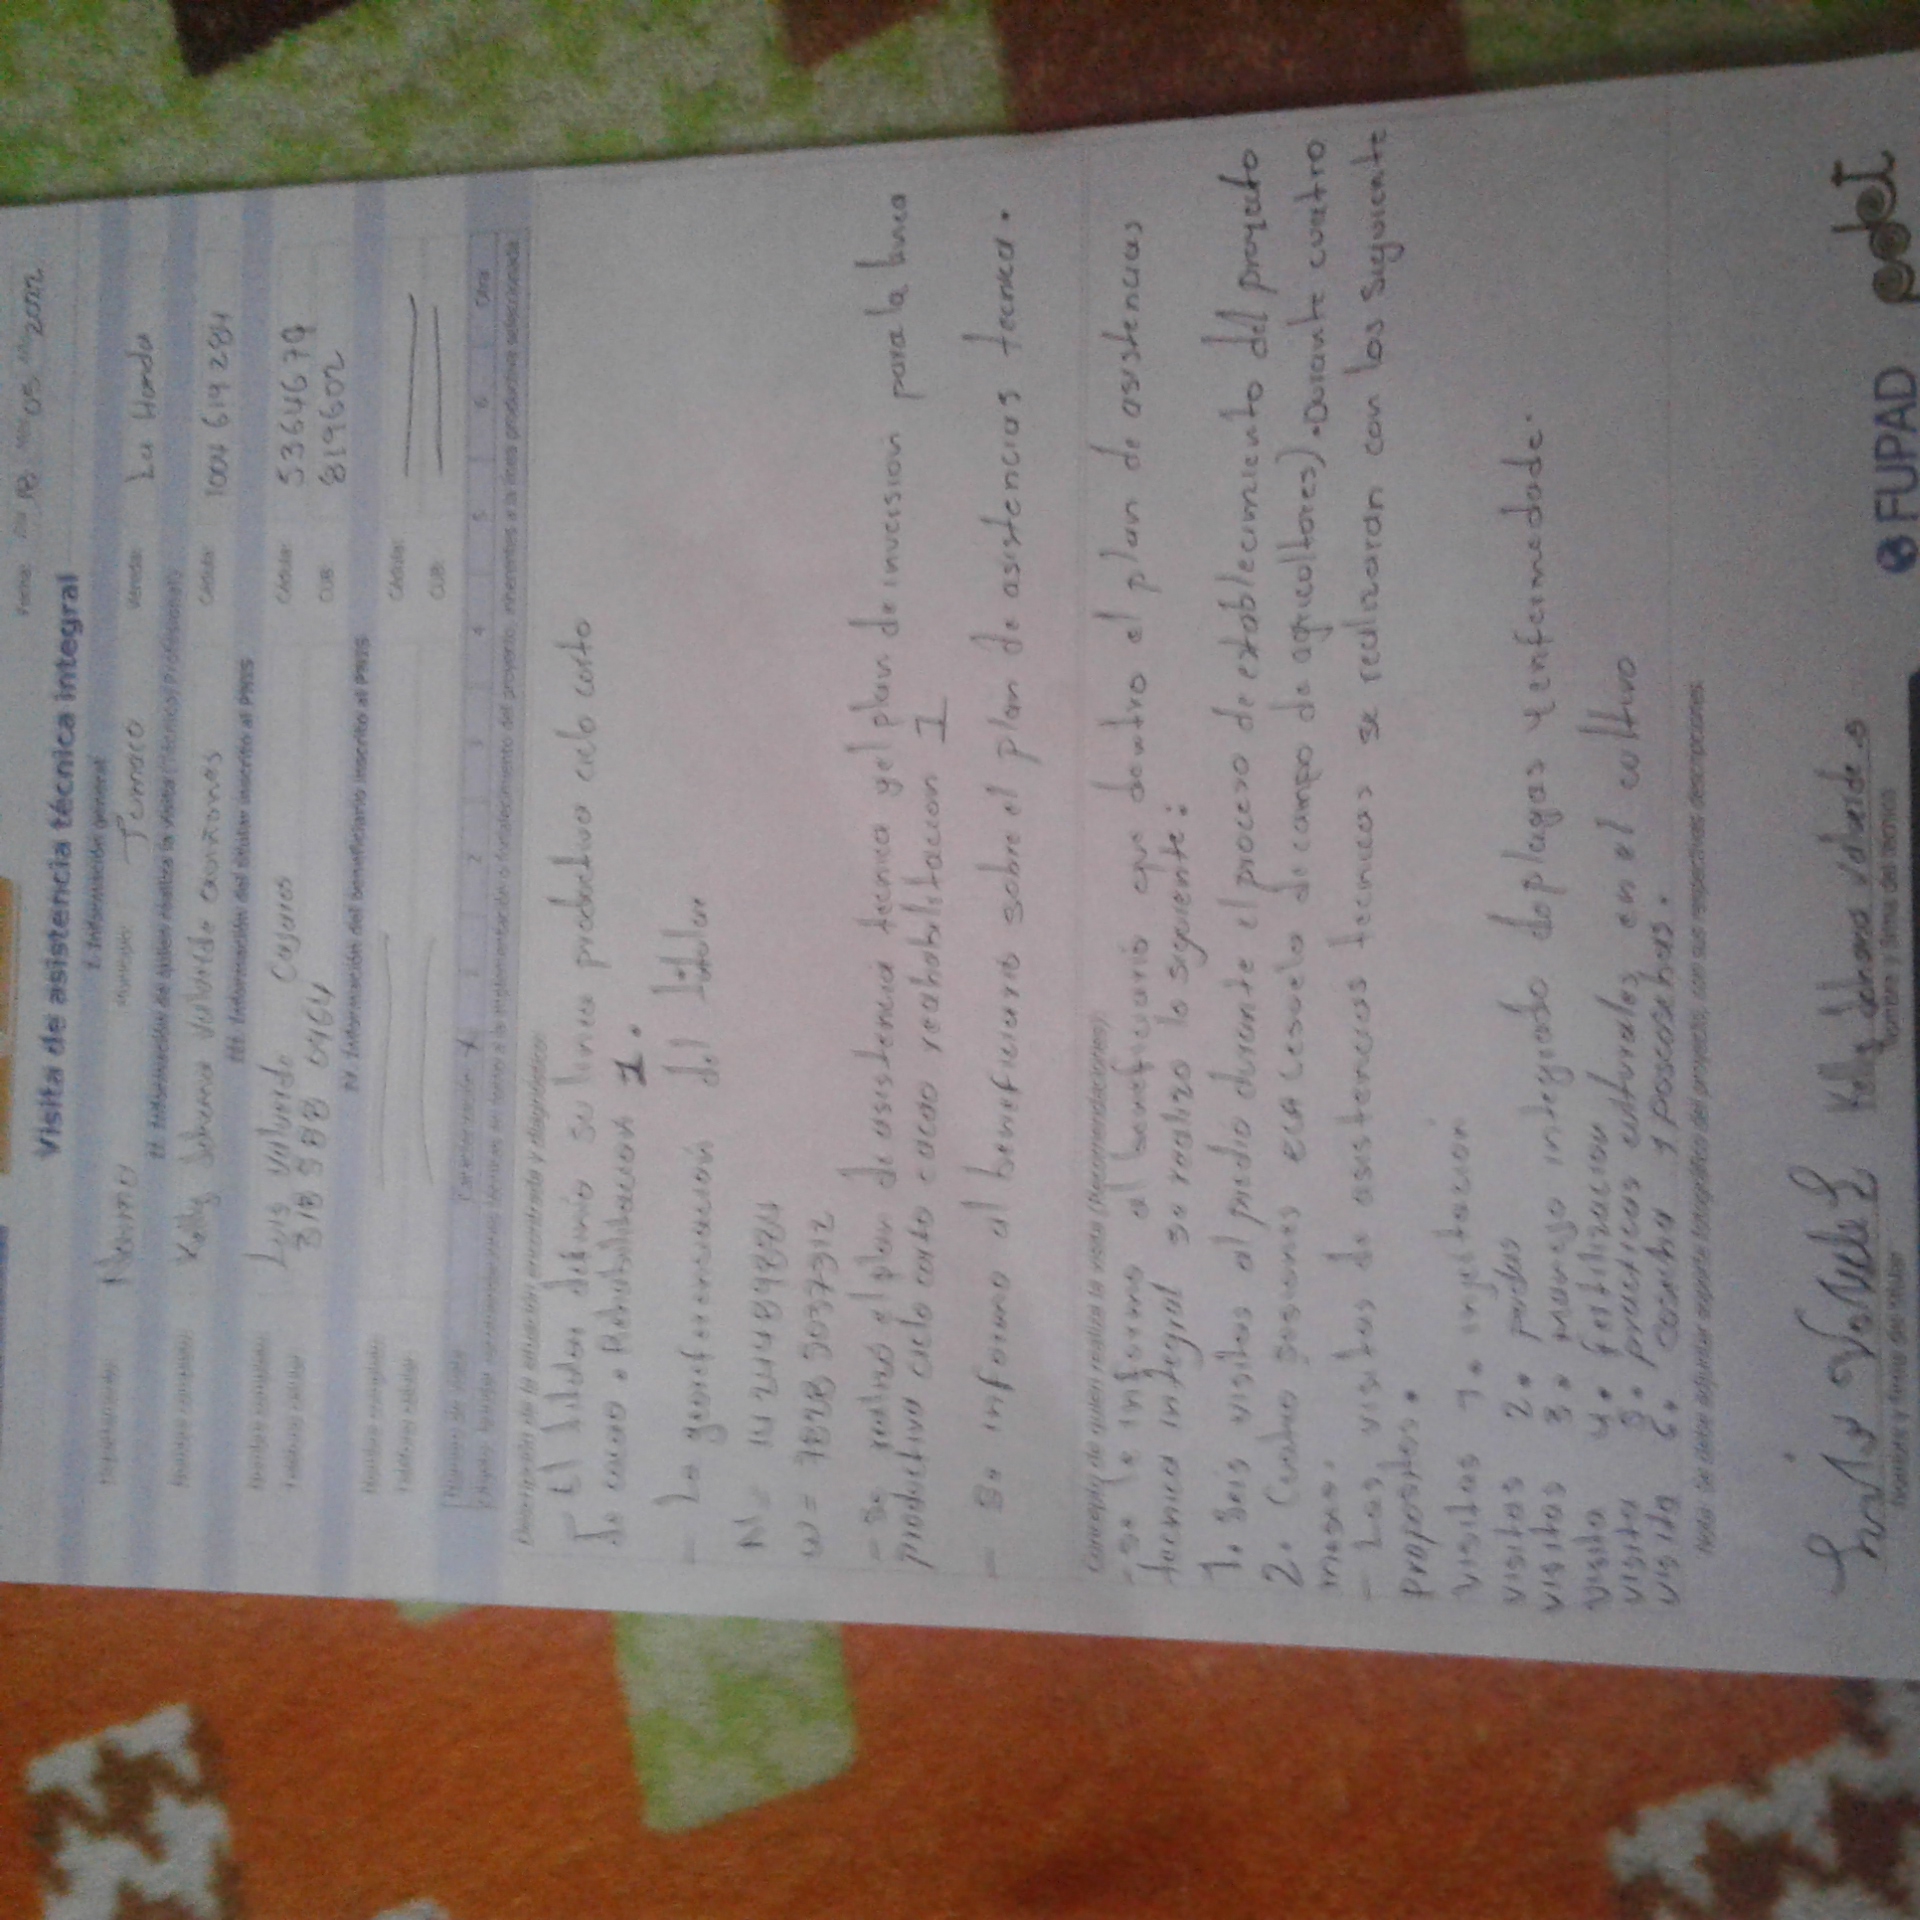 Fecha: 18 05 2022
Visita de asistencia técnica integral
I. Información general
Departamento: Nariño Municipio: Tumaco Vereda: La Honda
II. Información de quien realiza la visita (Técnico/Profesional)
Nombre completo: Kelly Johana Valverde Cédula: 1004619284
III. Información del titular inscrito al PNIS
Nombre completo: Luis Valverde Cajares Cédula: 5364679
Teléfono celular: 318 588 0464 CUB: 819602
IV. Información del beneficiario inscrito al PNIS
Nombre completo: Cédula:
Teléfono celular: CUB:
Número de visita Caracterización X 1 2 3 4 5 6 Otra
Descripción de la situación encontrada y diagnóstico:
- El titular definio su linea productiva ciclo corto
de cacao. Rehabilitacion 1.
- La georeferensiacion del titular
N= 1424489884
W= 78285037312
- Se realizo el plan de asistencia tecnica y el plan de inversion para la linea
productiva ciclo corto cacao reahabilitacion 1
- se informo al benificiario sobre el plan de asistencias tecnica.
Concepto de quien realiza la visita (Recomendaciones):
- se le informo al beneficiario que dentro el plan de asistencias
tecnica integral se realizo lo siguiente:
1. Seis visitas al predio durante el proceso de establecimiento del proyecto
2. Cuatro sesiones eca (escuela de campo de agricoltores). Durante cuatro
meses.
- Las visitas de asistencias tecnicas se realizaran con los siguiente
propositos.
visitas 1. injertacion
visitas 2. podas
visitas 3. manejo integrado de plagas y enfermedade.
visita 4. fertilizacion
visita 5. practicas culturales en el cultivo
visita 6. cosecha y poscosechas.
Nota: Se debe adjuntar soporte fotográfico del proyecto, con sus respectivas descripciones
Luis Valverde Kelly Johana Valverde
Nombre y firma del titular Nombre y firma del técnico
FUPAD pdet